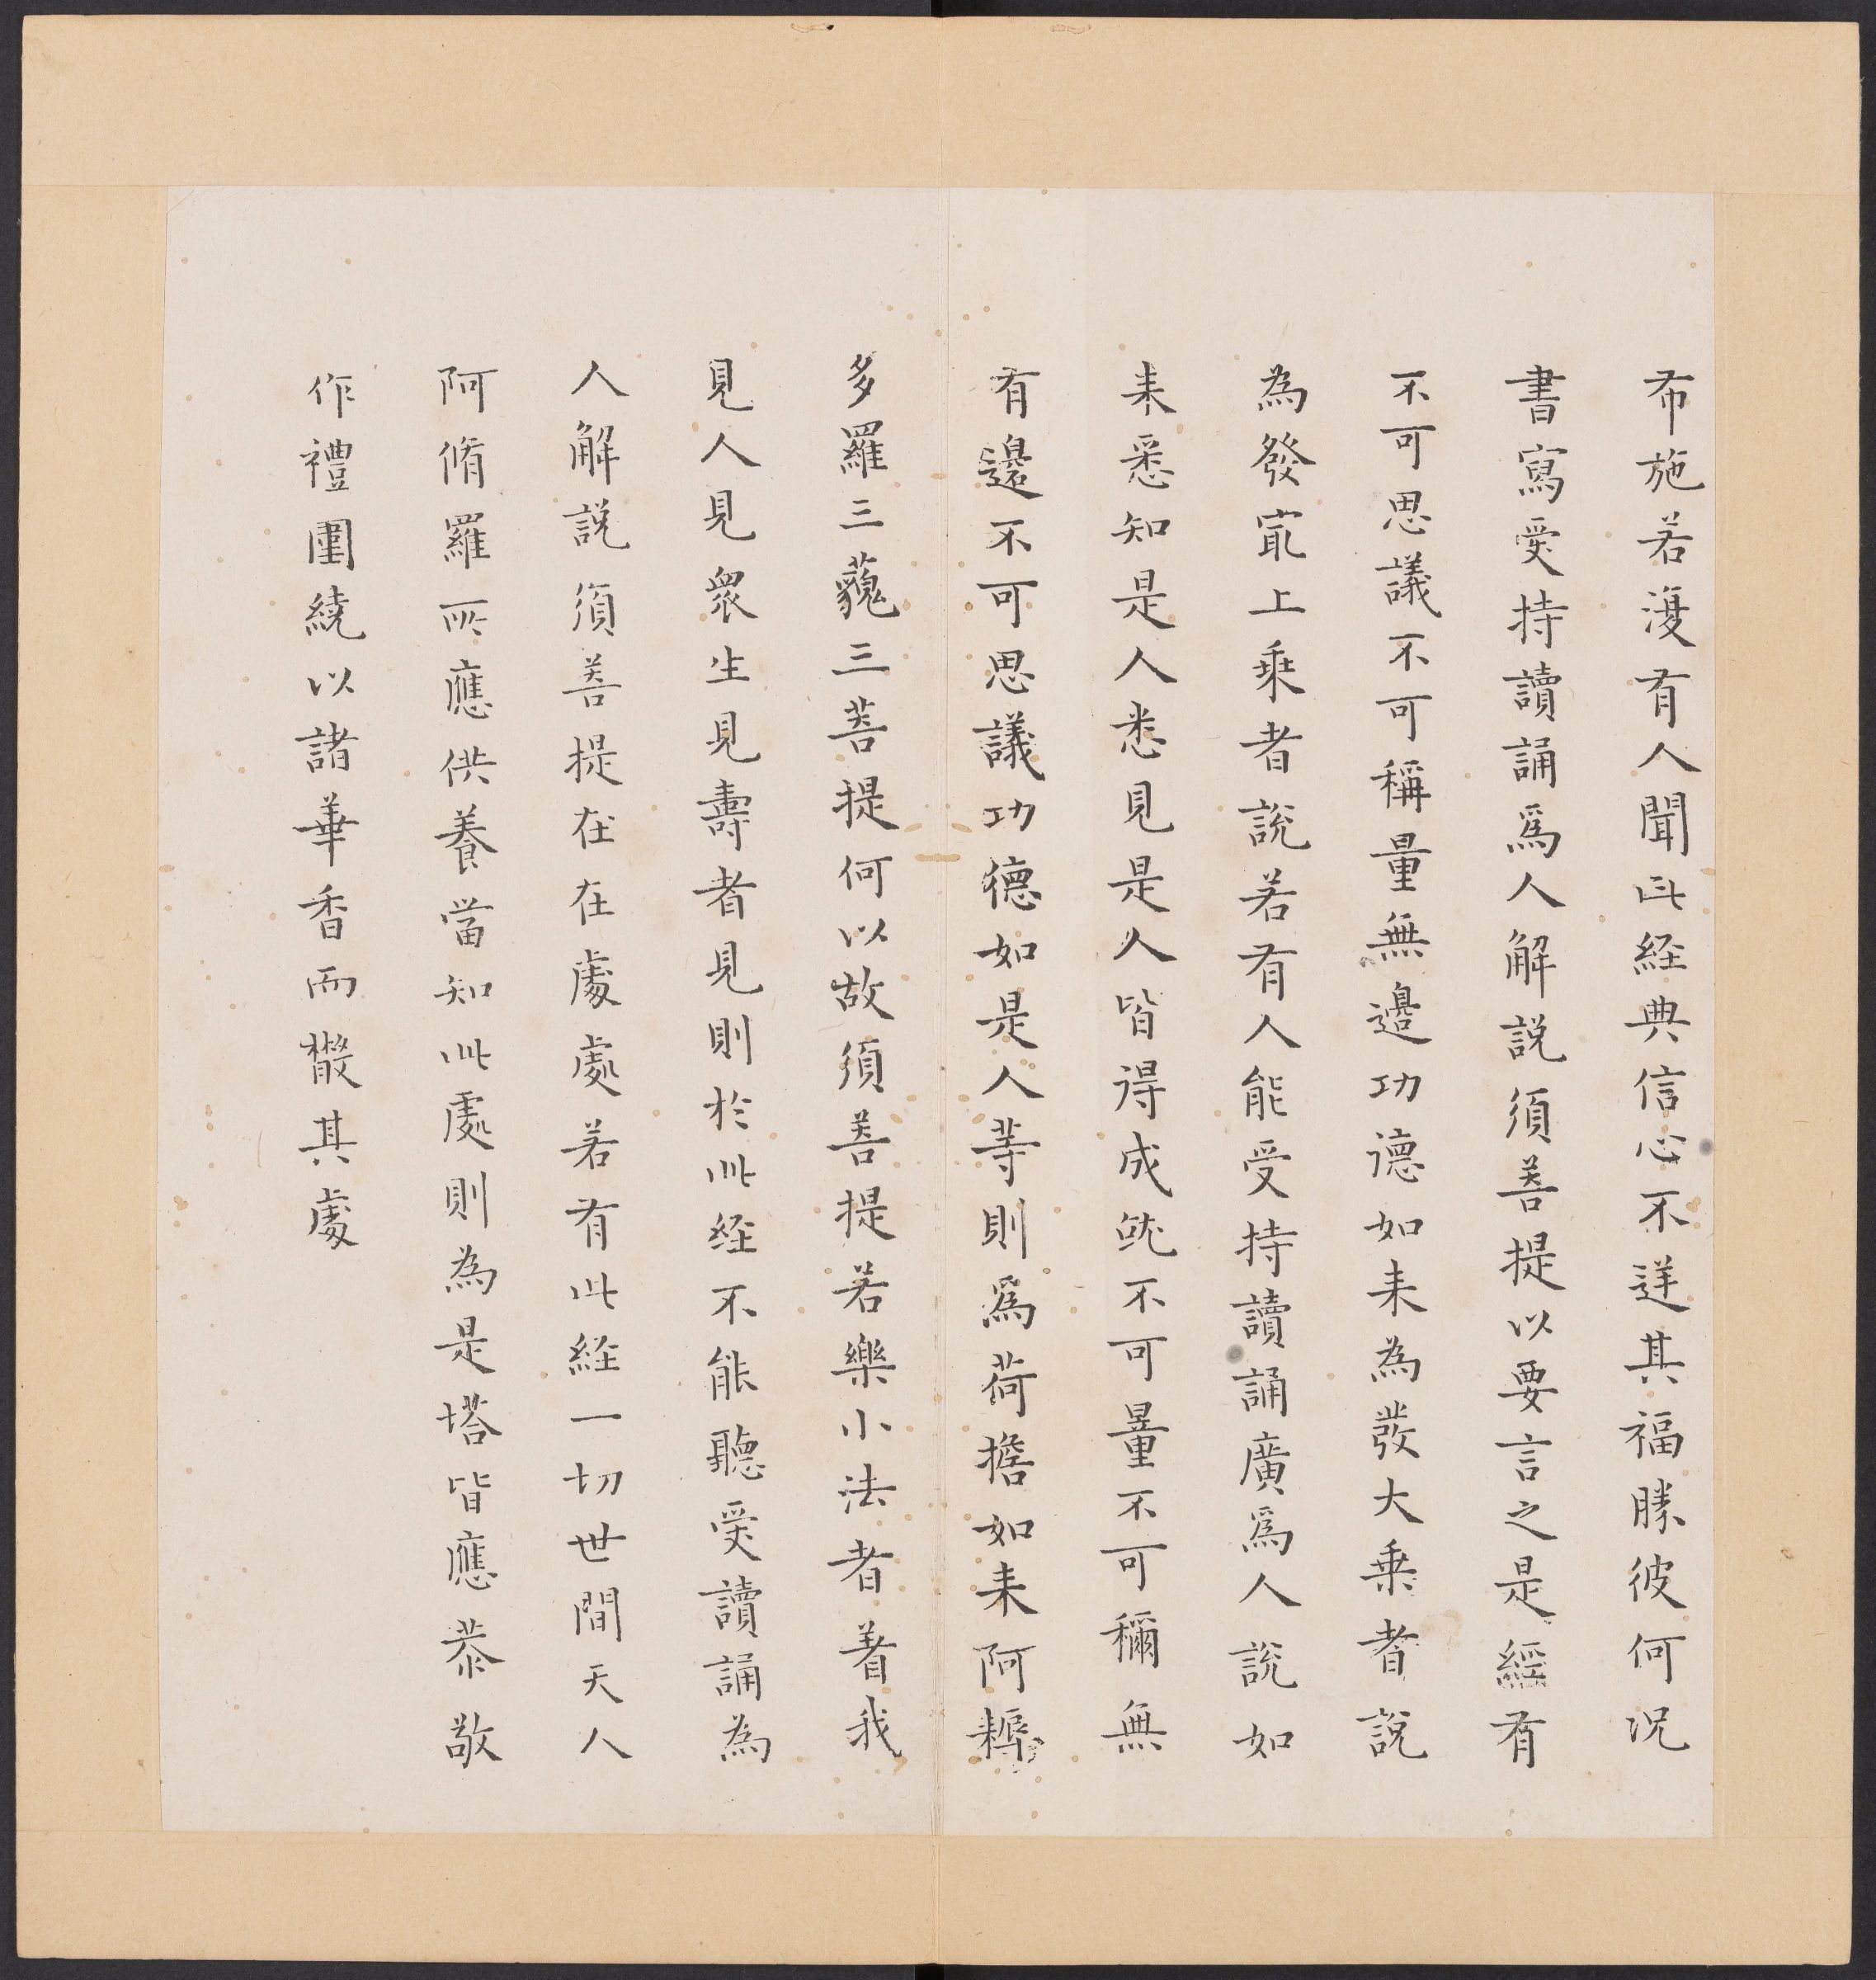 布施若復有人聞此経典信心不逆其福勝彼何况
書寫受持讀誦爲人解説須菩提以要言之是經有
不可思議不可稱量無邊功德如来為發大乗者說
為發冣上乘者說若有人能受持讀誦廣爲人說如
来悉知是人悉見是人皆得成就不可量不可稱無
有邊不可思議功德如是人等則爲荷擔如来阿耨
多羅三藐三菩提何以故須菩提若樂小法者着我
見人見衆生見壽者見則於此経不能聽受讀誦為
人解說須菩提在在處處若有此経一切世間天人
阿脩羅所應供養當知此處則為是塔皆應恭敬
作禮圍繞以諸華香而散其處